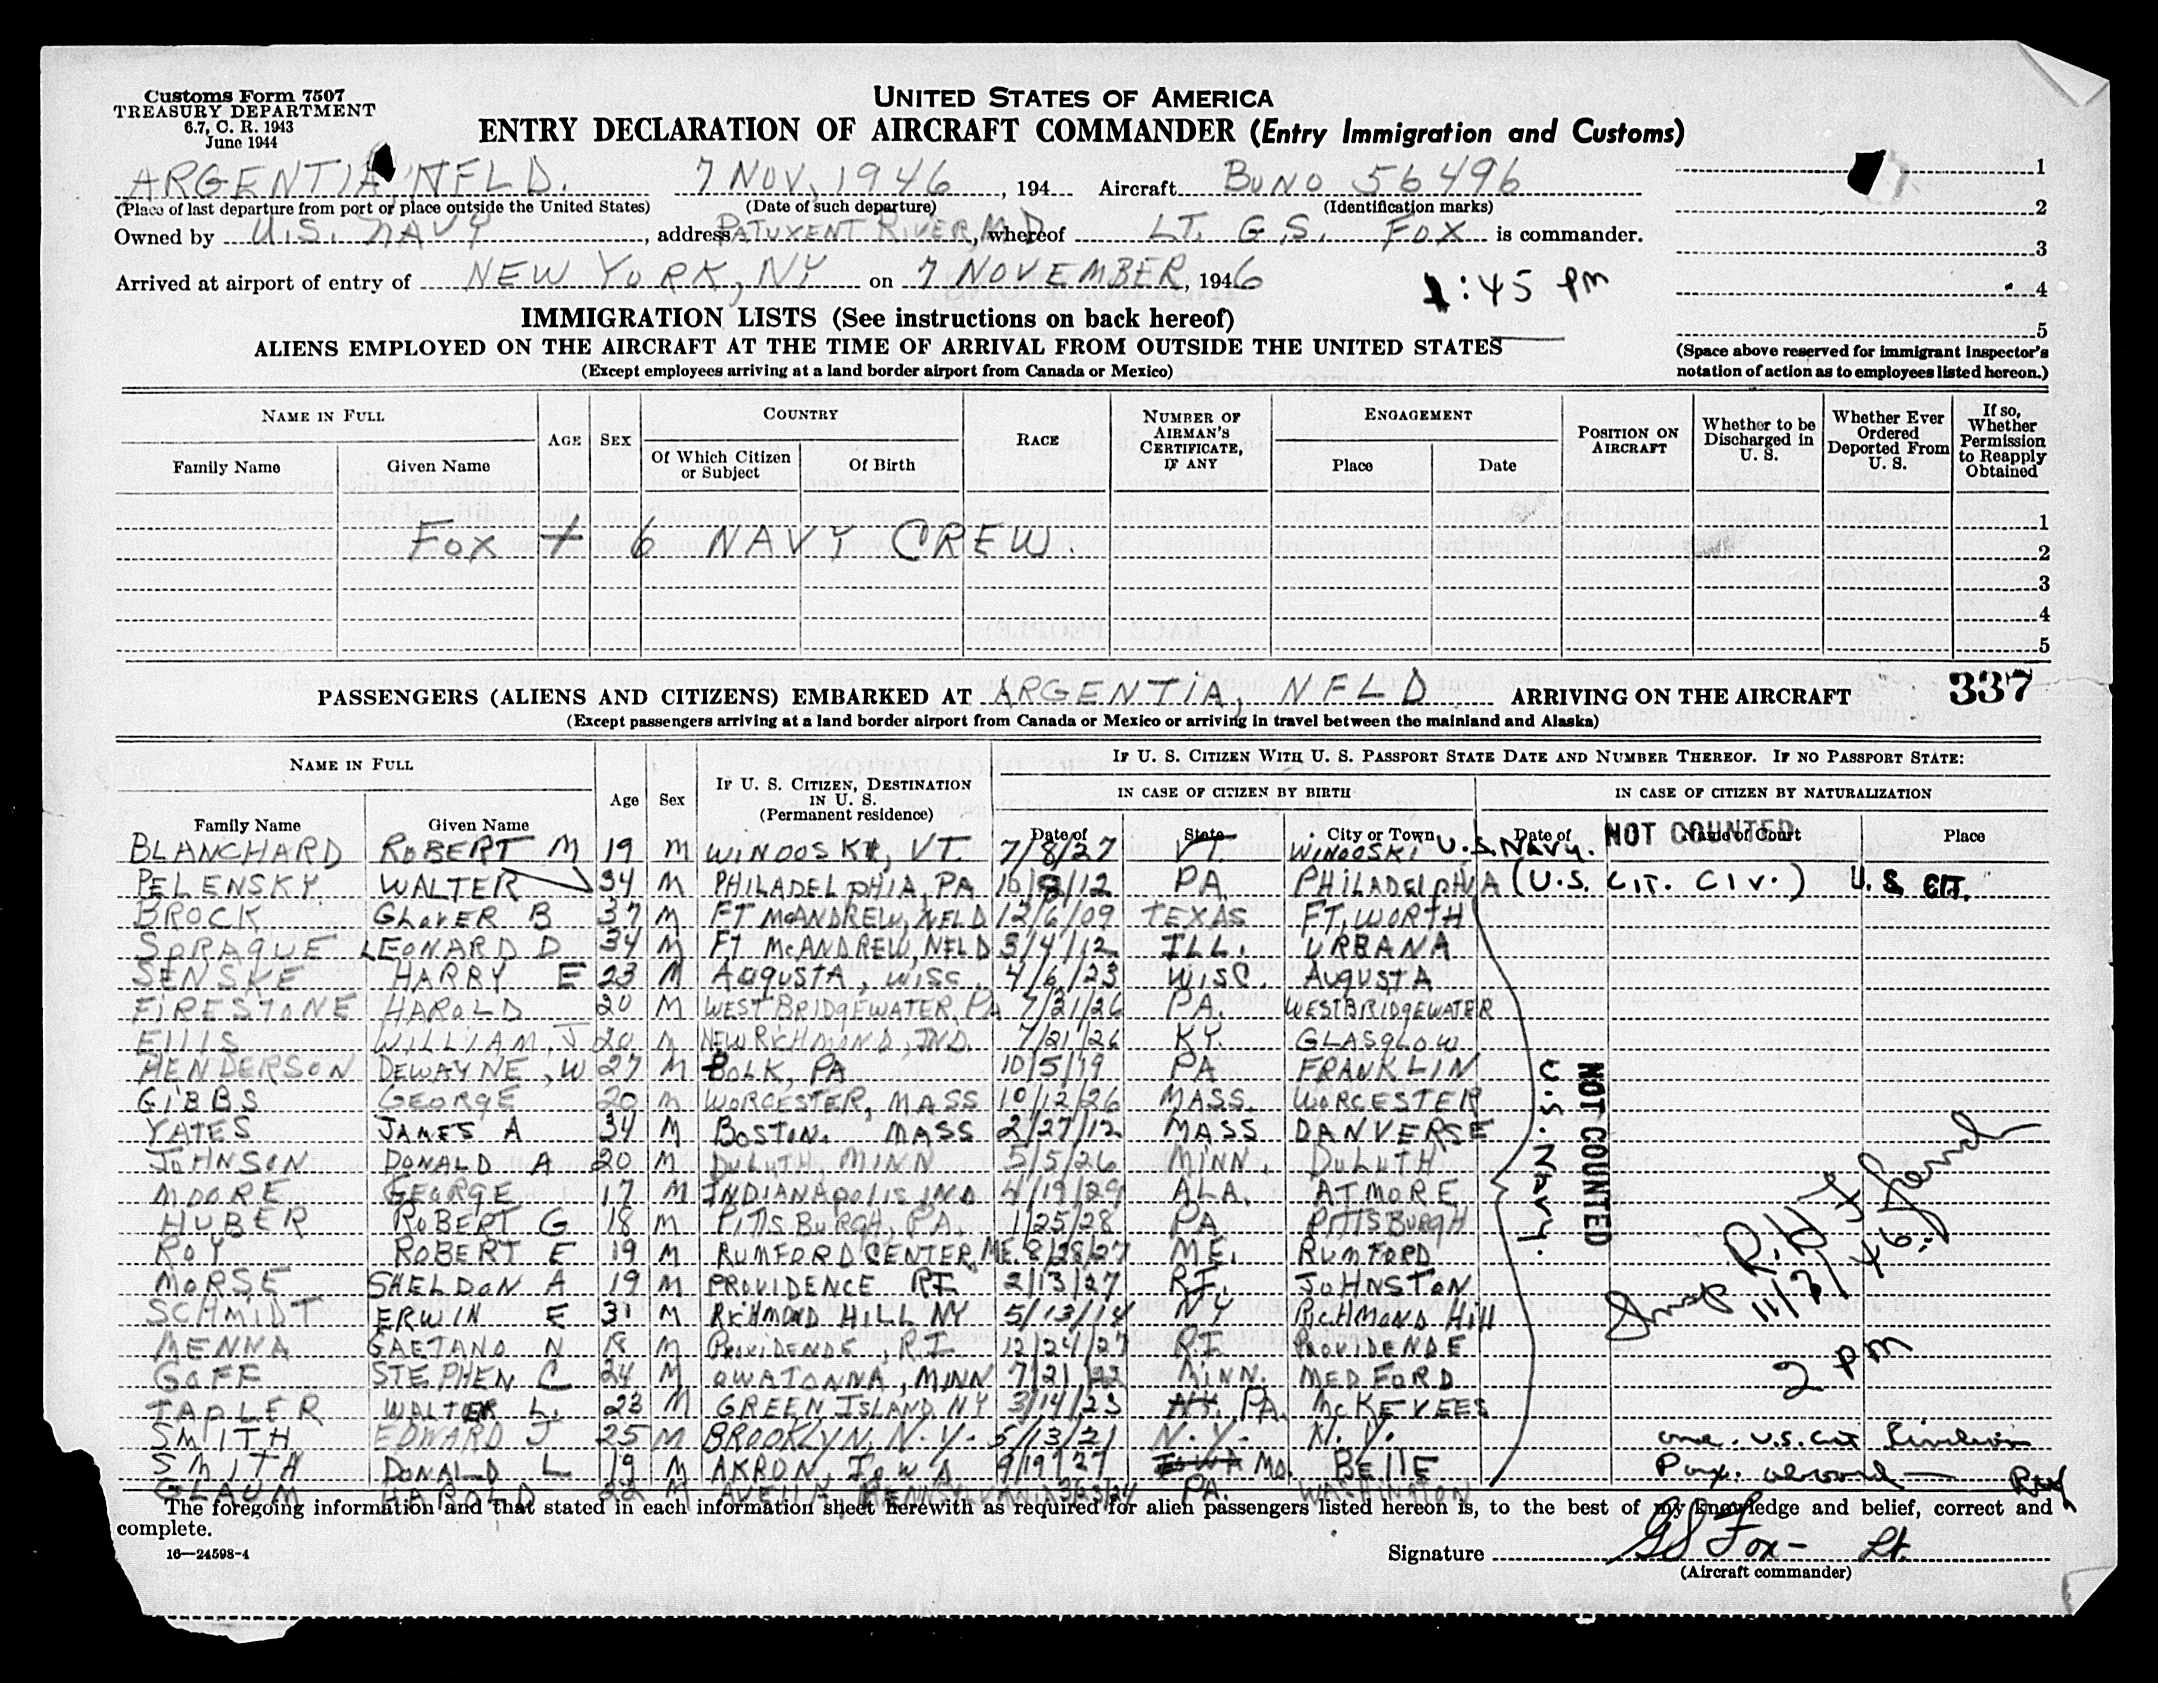 Customs Form 7507
TREASURY DEPARTMENT
6.7, C. R. 1943
June 1944
UNITED STATES OF AMERICA
ENTRY DECLARATION OF AIRCRAFT COMMANDER (Entry Immigration and Customs)
ARGENTIA, NFLD. 7 NOV, 1946, 194 Aircraft BUNO 56496
(Place of last departure from port or place outside the United States) (Date of such departure) (Identification marks)
Owned by U.S. NAVY, address PATUXENT RIVER, MD, whereof LT. G.S. FOX is commander.
Arrived at airport of entry of NEW YORK, NY on 7 NOVEMBER, 1946 1:45 pm
1
2
3
4
5
(Space above reserved for immigrant inspector's
notation of action as to employees listed hereon.)
IMMIGRATION LISTS (See instructions on back hereof)
ALIENS EMPLOYED ON THE AIRCRAFT AT THE TIME OF ARRIVAL FROM OUTSIDE THE UNITED STATES
(Except employees arriving at a land border airport from Canada or Mexico)
NAME IN FULL AGE SEX COUNTRY RACE NUMBER OF AIRMAN'S CERTIFICATE, IF ANY ENGAGEMENT POSITION ON AIRCRAFT Whether to be Discharged in U. S. Whether Ever Ordered Deported From U. S. If so, Whether Permission to Reapply Obtained
Family Name Given Name Of Which Citizen or Subject Of Birth Place Date
1
FOX + 6 NAVY CREW. 2
3
4
5
PASSENGERS (ALIENS AND CITIZENS) EMBARKED AT ARGENTIA, NFLD ARRIVING ON THE AIRCRAFT 337
(Except passengers arriving at a land border airport from Canada or Mexico or arriving in travel between the mainland and Alaska)
NAME IN FULL Age Sex IF U. S. CITIZEN, DESTINATION IN U. S. (Permanent residence) IF U. S. CITIZEN WITH U. S. PASSPORT STATE DATE AND NUMBER THEREOF. IF NO PASSPORT STATE:
IN CASE OF CITIZEN BY BIRTH IN CASE OF CITIZEN BY NATURALIZATION
Family Name Given Name Date of State City or Town Date of Name of Court Place
NOT COUNTED
BLANCHARD ROBERT M 19 M WINOOSKI, VT. 7/8/27 VT. WINOOSKI U.S. Navy.
PELENSKY WALTER 34 M PHILADELPHIA, PA 10/8/12 PA PHILADELPHIA (U.S. CIT. CIV.) U.S. CIT.
BROCK GLOVER B 37 M FT McANDREW, NFLD 12/6/09 TEXAS FT. WORTH
SPRAGUE LEONARD D 34 M FT McANDREW, NFLD 3/4/12 ILL. URBANA
SENSKE HARRY E 23 M AUGUSTA, WISC. 4/6/23 WISC. AUGUSTA
FIRESTONE HAROLD 20 M WEST BRIDGEWATER, PA 7/31/26 PA. WESTBRIDGEWATER
EllIS WILLIAM J 20 M NEW RICHMOND, IND. 7/21/26 KY. GLASGLOW
HENDERSON DEWAYNE, W 27 M POLK, PA 10/5/19 PA FRANKLIN
GIBBS GEORGE 20 M WORCESTER, MASS 10/12/26 MASS. WORCESTER
YATES JAMES A 34 M BOSTON. MASS 2/27/12 MASS DANVERSE
JOHNSON DONALD A 20 M DULUTH, MINN 5/5/26 MINN. DULUTH
MOORE GEORGE 17 M INDIANAPOLIS, IND 4/19/29 ALA. ATMORE
HUBER ROBERT G 18 M PITTSBURGH, PA. 1/25/28 PA PITTSBURGH
ROY ROBERT E 19 M RUMFORD CENTER, ME. 8/28/27 ME. RUMFORD
MORSE SHELDON A 19 M PROVIDENCE RI. 2/13/27 R.I. JOHNSTON
SCHMIDT ERWIN E 31 M RICHMOND HILL NY 5/13/14 NY RICHMOND Hill
MENNA GAETANO N 18 M PROVIDENDE, R.I. 12/24/27 R.I PROVIDENDE
GOFF STEPHEN C 24 M OWATONNA, MINN 7/21/22 MINN. MEDFORD
TAPLER WALTER L. 23 M GREEN ISLAND, NY 3/14/23 PA. McKEYEES
SMITH EDWARD J 25 M BROOKLYN, N.Y. 5/13/21 N.Y. N.Y.
SMITH DONALD L 19 M AKRON, IOWA 9/19/27 IOWA MO. BEllE
GLAUM HAROLD 22 M AVELLA, PENNSYLVANIA 3/23/24 PA. WASHINGTON
U.S. Navy.
NOT COUNTED
Insp R.H.
11/7/46
2 pm
one. U.S. Cit Civilian
Pax. aboard
The foregoing information and that stated in each information sheet herewith as required for alien passengers listed hereon is, to the best of my knowledge and belief, correct and
complete.
16—24598-4
Signature GS Fox - Lt.
(Aircraft commander)